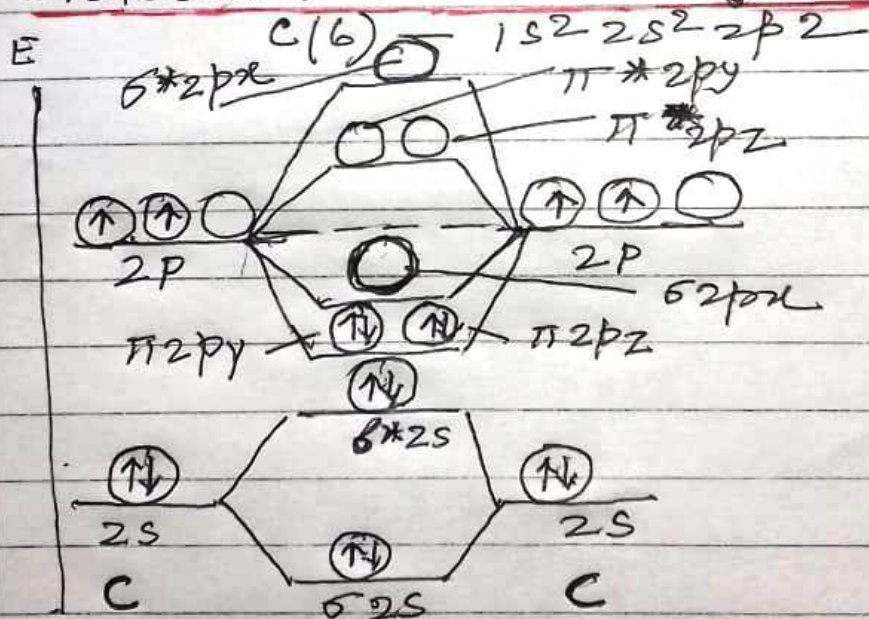 E C(6) 1s² 2s² 2p²
σ*2px π*2py
π*2pz
↑ ↑ ↑ ↑
2p 2p
σ2px
π2py ↑↓ ↑↓ π2pz
↑↓
σ*2s
↑↓ ↑↓
2s 2s
↑↓
C σ2s C